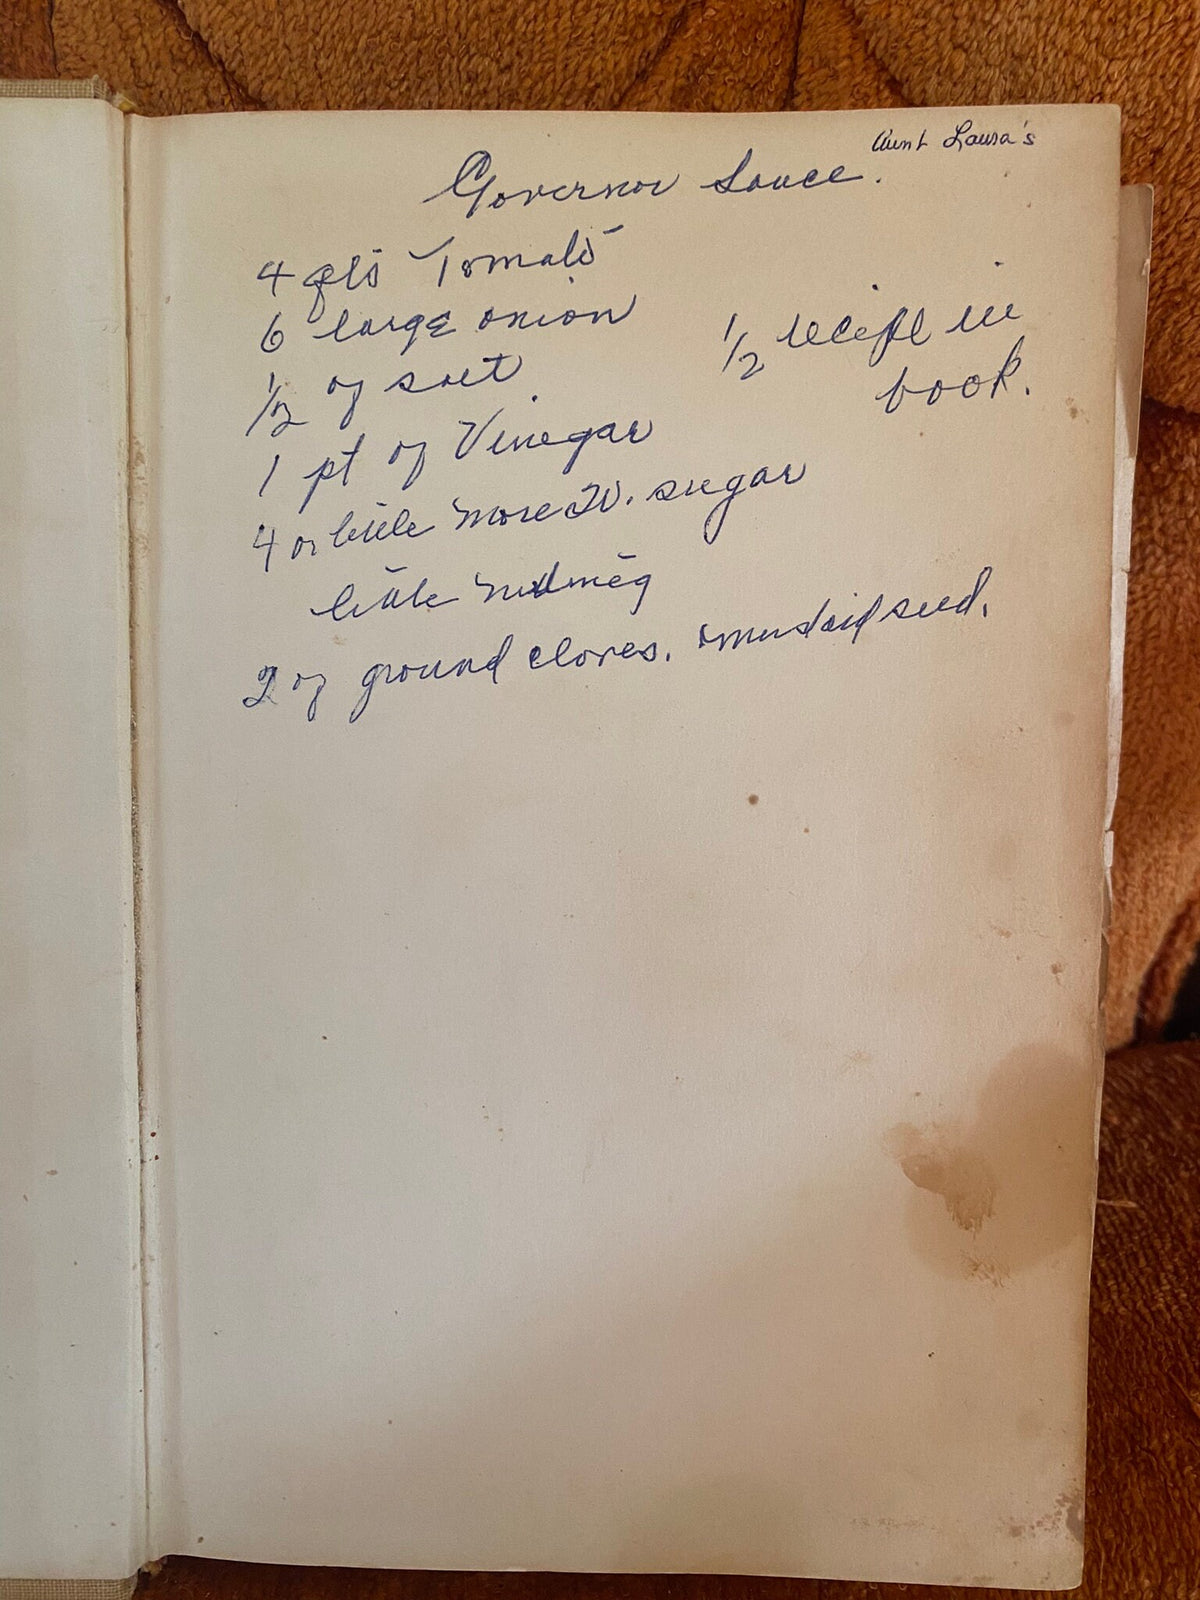 Aunt Laura's
Governor Sauce.
4 qts Tomato
6 large onion
1/2 of salt
1 pt of Vinegar
4 or little more W. sugar
little nutmeg
2 of ground cloves. mustard seed.
1/2 recipe in
book.